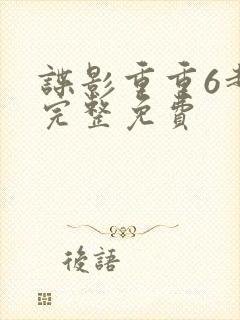 諜影重重6
完整免費
後語